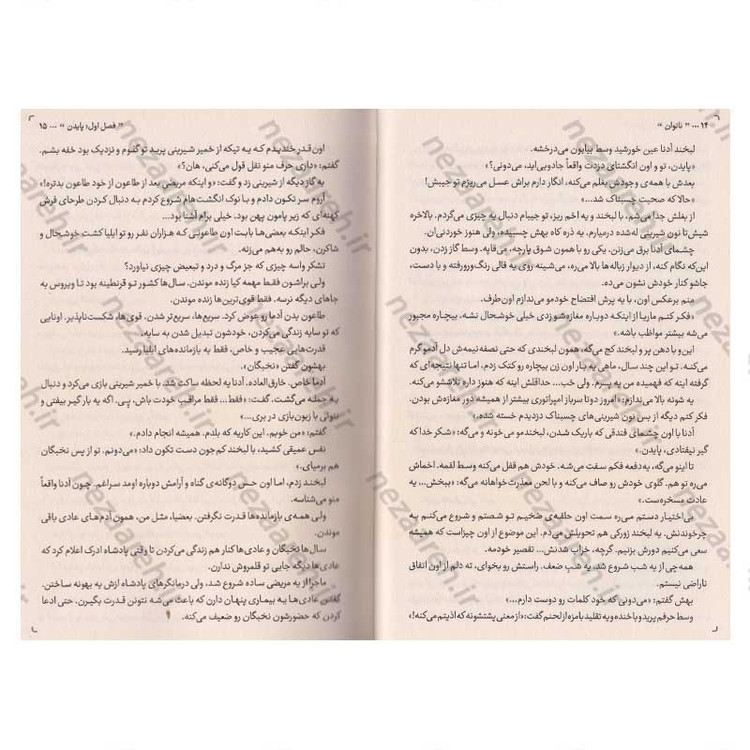 ۱۴ ... " ناتوان "
لبخند آدنا عین خورشید وسط بیابون می‌درخشه.
«پایدن، تو و اون انگشتای دزدت واقعاً جادویی‌اید، می‌دونی؟»
بعدش با همه‌ی وجودش بغلم می‌کنه، انگار دارم براش عسل می‌ریزم تو جیبش!
«حالا که صحبت چسبناک شد...»
از بغلش جدا می‌شم، با لبخند و یه اخم ریز، تو جیبام دنبال یه چیزی می‌گردم. بالاخره
شیش‌تا نون شیرینی له‌شده درمیارم. یه ذره کاه بهش چسبیده، ولی هنوز خوردنی‌ان.
چشمای آدنا برق می‌زنن. یکی رو با همون شوق پارچه، می‌قاپه. وسط گاز زدن، بدون
این‌که نگام کنه، از دیوار زباله‌ها بالا می‌ره، می‌شینه روی یه قالی رنگ‌ورورفته و با دست،
جاشو کنار خودش نشون می‌ده.
منم برعکس اون، با یه پرش افتضاح خودمو می‌ندازم اون‌طرف.
«فکر کنم ماریا از اینکه دوباره مغازه‌شو زدی خیلی خوشحال نشه. بیچاره مجبور
می‌شه بیشتر مواظب باشه.»
این و با دهن پر و لبخند کج می‌گه، همون لبخندی که حتی نصفه نیمه‌ش دل آدمو گرم
می‌کنه. تو این چند سال، ماهی یه بار اون زن بیچاره رو کتک زدم، اما تنها نتیجه‌ای که
گرفته اینه که فهمیده من یه پسرم. ولی خب... حداقلش اینه که هنوز داره تلاششو می‌کنه.
یه شونه بالا می‌ندازم: «امروز دوتا سرباز امپراتوری بیشتر از همیشه دور مغازه‌ش بودن.
فکر کنم دیگه از بس نون شیرینی‌های چسبناک دزدیدم خسته شده.»
آدنا با اون چشمای فندقی که باریک شدن، لبخندمو می‌خونه و می‌گه: «شکر خدا که
گیر نیفتادی، پایدن.»
تا اینو می‌گه، یه‌دفعه فکم سفت می‌شه. خودش هم قفل می‌کنه وسط لقمه. اخماش
می‌ره تو هم. گلوی خودش رو صاف می‌کنه و با لحن معذرت‌خواهانه می‌گه: «ببخش... یه
عادت مسخره‌ست.»
بی‌اختیار دستم می‌ره سمت اون حلقه‌ی ضخیم تو شستم و شروع می‌کنم به
چرخوندنش. یه لبخند زورکی هم تحویلش می‌دم. این موضوع از اون چیزاست که همیشه
سعی می‌کنیم دورش بزنیم. گرچه، خراب شدنش... تقصیر خودمه.
همه‌چی از یه شب شروع شد، یه شپ ضعف. راستش رو بخوای، ته دلم از اون اتفاق
ناراضی نیستم.
بهش گفتم: «می‌دونی که خود کلمات رو دوست دارم...»
وسط حرفم پرید و با خنده و یه تقلید بامزه از لحنم گفت: «از معنی پشتشونه که اذیتم می‌کنه!
" فصل اول؛ پایدن " ... ۱۵
اون قدر خندیدم که یه تیکه از خمیر شیرینی پرید تو گلوم و نزدیک بود خفه بشم.
گفتم: «داری حرف منو نقل قول می‌کنی، هان؟»
یه گاز دیگه از شیرینی زد و گفت: «و اینکه مریضی بعد از طاعون از خود طاعون بدتره!»
آروم سر تکون دادم و با نوک انگشت‌هام شروع کردم به دنبال کردن طرحای فرش
کهنه‌ای که زیر پامون پهن بود. خیلی برام آشنا بود...
فکر اینکه بعضی‌ها بابت اون طاعونی که هزاران نفر رو تو ایلیا کشت خوشحال و
شاکرن، حالم رو به‌هم می‌زنه.
تشکر واسه چیزی که جز مرگ و درد و تبعیض چیزی نیاورد؟
ولی براشون فقط مهمه کیا زنده موندن. سال‌ها کشور تو قرنطینه بود تا ویروس به
جاهای دیگه نرسه. فقط قوی‌ترین‌ها زنده موندن.
طاعون بدن آدما رو عوض کرد. سریع‌ها، سریع‌تر شدن. قوی‌ها، شکست‌ناپذیر. اونایی
که تو سایه زندگی می‌کردن، خودشون تبدیل شدن به سایه.
قدرت‌هایی عجیب و خاص، فقط به بازمانده‌های ایلیا رسید.
بهشون گفتن «نخبگان».
آدما خاص. خارق‌العاده. آدنا یه لحظه ساکت شد. با خمیر شیرینی بازی می‌کرد و دنبال
یه جمله می‌گشت. گفت: «فقط... فقط مراقب خودت باش، پی. اگه یه بار گیر بیفتی و
نتونی با زبون‌بازی در بری...»
گفتم: «من خوبم. این کاریه که بلدم. همیشه انجام دادم.»
نفس عمیقی کشید، با لبخند کم‌جون دست تکون داد: «می‌دونم. تو از پس نخبگان
هم برمیای.»
لبخند زدم، اما اون حس دوگانه‌ی گناه و آرامش دوباره اومد سراغم. چون آدنا واقعاً
منو می‌شناسه.
ولی همه‌ی بازمانده‌ها قدرت نگرفتن. بعضیا، مثل من، همون آدم‌های عادی باقی
موندن.
سال‌ها نخبگان و عادی‌ها کنار هم زندگی می‌کردن تا وقتی پادشاه ادرک اعلام کرد که
عادی‌ها دیگه جایی تو قلمروش ندارن.
ماجرا از یه مریضی ساده شروع شد، ولی درمانگرهای پادشاه ازش یه بهونه ساختن.
گفتن عادی‌ها یه بیماری پنهان دارن که باعث می‌شه نتونن قدرت بگیرن. حتی ادعا
کردن که حضورشون نخبگان رو ضعیف می‌کنه.
nezaareh.ir